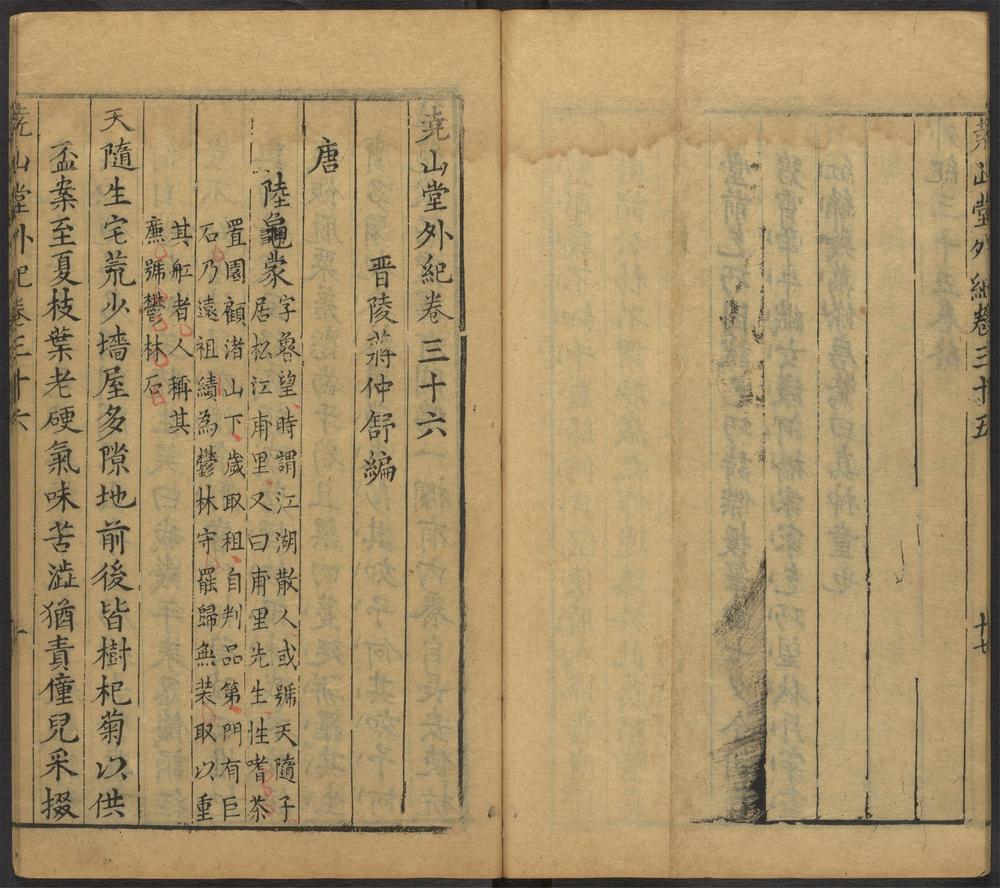 堯山堂外紀卷三十五
十七
堯山堂外紀卷三十六
晋陵蔣仲舒編
唐
陸龜蒙
字魯望時謂江湖散人或號天隨子
居松江甫里又曰甫里先生性嗜茶
置園顧渚山下歲取租自判品第門有巨
石乃遠祖績為鬱林守罷歸無装取以重
其舡者人稱其
廉號鬱林石
天隨生宅荒少墻屋多隙地前後皆樹杞菊以供
盃案至夏枝葉老硬氣味苦澁猶責僮兒采掇
堯山堂外紀卷三十六